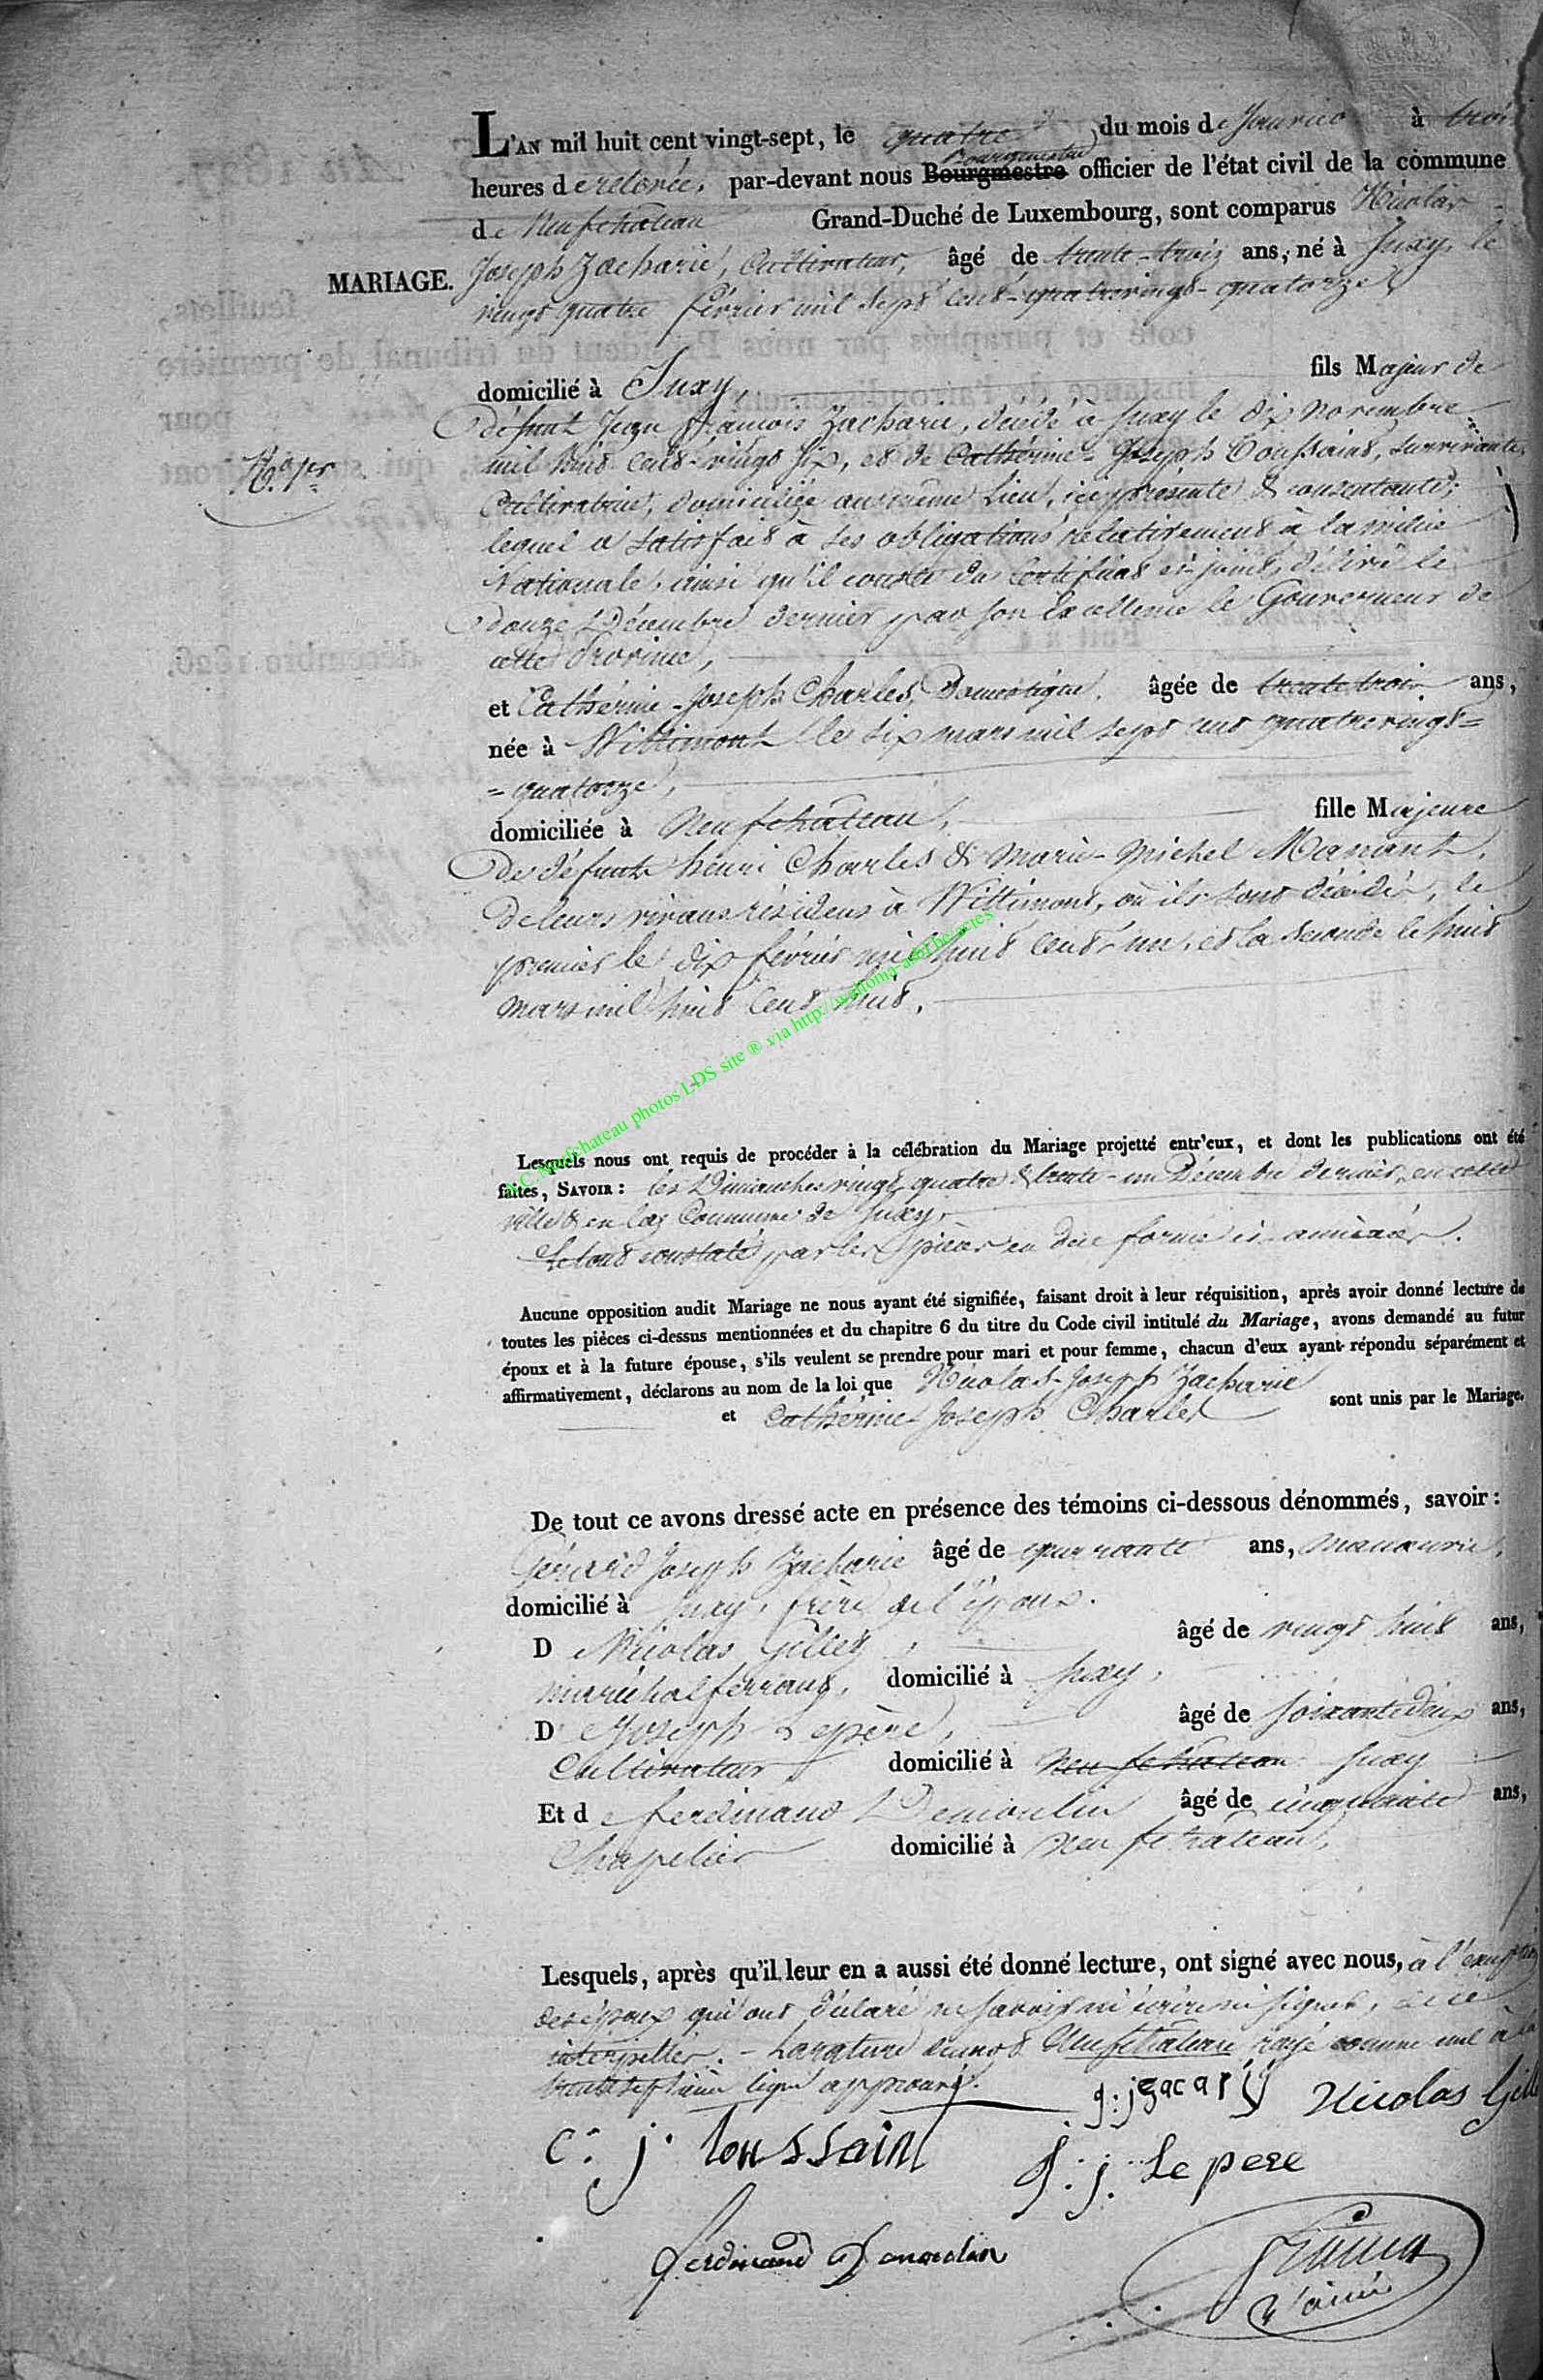 L'AN mil huit cent vingt-sept, le quatre du mois de Janvier à trois
heures de relevée, par-devant nous Bourgmestre Bourgmestre officier de l'état civil de la commune
de Neufchâteau Grand-Duché de Luxembourg, sont comparus Nicolas
MARIAGE. Joseph Zacharie, Cultivateur, âgé de trente-trois ans, né à Juxy, le
vingt quatre février mil sept cent-quatrevingt-quatorze
domicilié à Juxy, fils Majeur de
défunt Jean françois Zacharie, décédé à Juxy le dix novembre
N.o 1er
mil huit cent-vingt six, et de Cathérine-Joseph Toussaint, survivante,
Cultivatrice, domiciliée au même lieu, ici présente & consentante;
lequel a satisfait à ses obligations relativement à la milice
Nationale, ainsi qu'il conste du Certificat ci-joint, délivré le
douze Décembre dernier par son Excellence le Gouverneur de
cette Province,
et Cathérine-Joseph Charles, Domestique, âgée de trente trois ans,
née à Wittimont le six mars mil sept cent quatrevingt=
=quatorze,
domiciliée à Neufchâteau, fille Majeure
de défunts henri Charles & Marie-Michel Manant,
de leurs vivans résidens à Wittimont, où ils sont décédés, le
premier le dix février mil huit cent un, et la seconde le huit
mars mil huit cent huit.
A.C. Neufchateau photos LDS site ® via http://wallonia-asbl.be/actes
Lesquels nous ont requis de procéder à la célébration du Mariage projetté entr'eux, et dont les publications ont été
faites, SAVOIR : les Dimanches vingt quatre & trente-un Décembre dernier, en cette
ville & en la Commune de Juxy.
Le tout constaté par les pièces en due forme ci-annexées.
Aucune opposition audit Mariage ne nous ayant été signifiée, faisant droit à leur réquisition, après avoir donné lecture de
toutes les pièces ci-dessus mentionnées et du chapitre 6 du titre du Code civil intitulé du Mariage, avons demandé au futur
époux et à la future épouse, s'ils veulent se prendre pour mari et pour femme, chacun d'eux ayant répondu séparément et
affirmativement, déclarons au nom de la loi que Nicolas-Joseph Zacharie
et Cathérine Joseph Charles sont unis par le Mariage.
De tout ce avons dressé acte en présence des témoins ci-dessous dénommés, savoir :
Gérard Joseph Zacharie âgé de quarante ans, manœuvre,
domicilié à Juxy, frère de l'époux.
D Nicolas Gilles, âgé de vingt huit ans,
maréchal ferrant, domicilié à Juxy,
D Joseph Lepère, âgé de soixante deux ans,
Cultivateur domicilié à Neufchâteau Juxy
Et de ferdinand Demoulin âgé de cinquante ans,
Chapelier domicilié à Neufchâteau,
Lesquels, après qu'il leur en a aussi été donné lecture, ont signé avec nous, à l'exception
des époux qui ont déclaré ne savoir ni écrire ni signer, de ce
interpellés. - La rature du mot Neufchâteau rayé comme nul à la
trente septième ligne approuvé.
g: j zacarij Nicolas Gill
C: j: toussaint
J: j: Le pere
ferdinand Demoulin
l'ainé